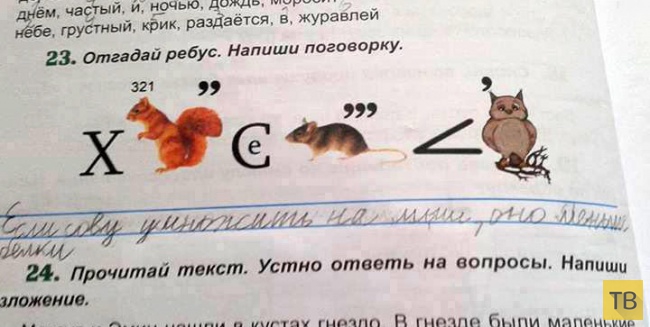 днём, частый, и, ночью, дождь,
небе, грустный, крик, раздаётся, в, журавлей
23. Отгадай ребус. Напиши поговорку.
321 ,, ,,, ,
Х С е <
Если сову умножить на мыши, оно меньше
белки
24. Прочитай текст. Устно ответь на вопросы. Напиши
зложение.
нашли в кустах гнездо. В гнезде были маленькие
ТВ